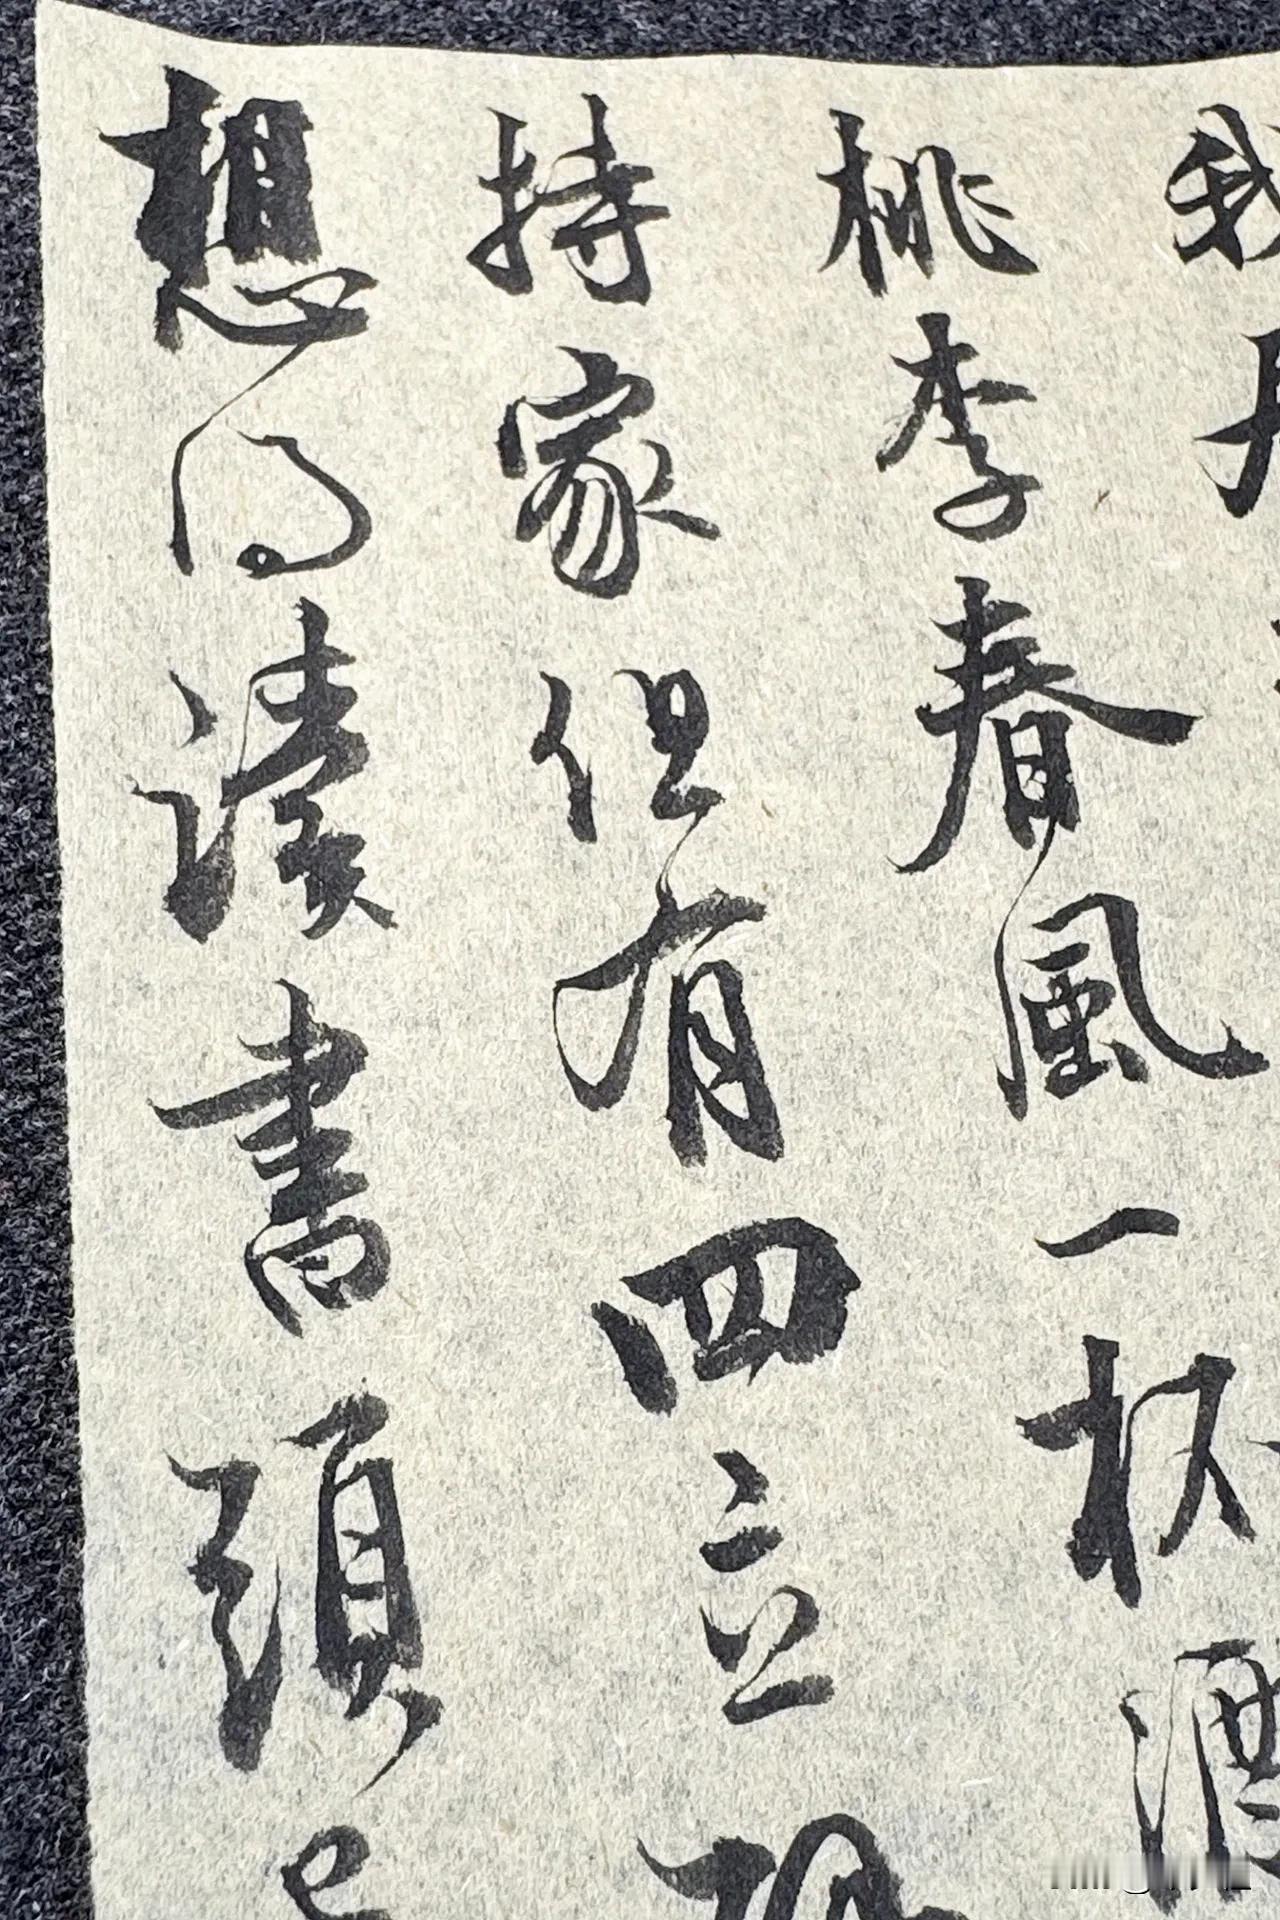 我
桃李春風一杯酒
持家但有四立
想得讀書頭已